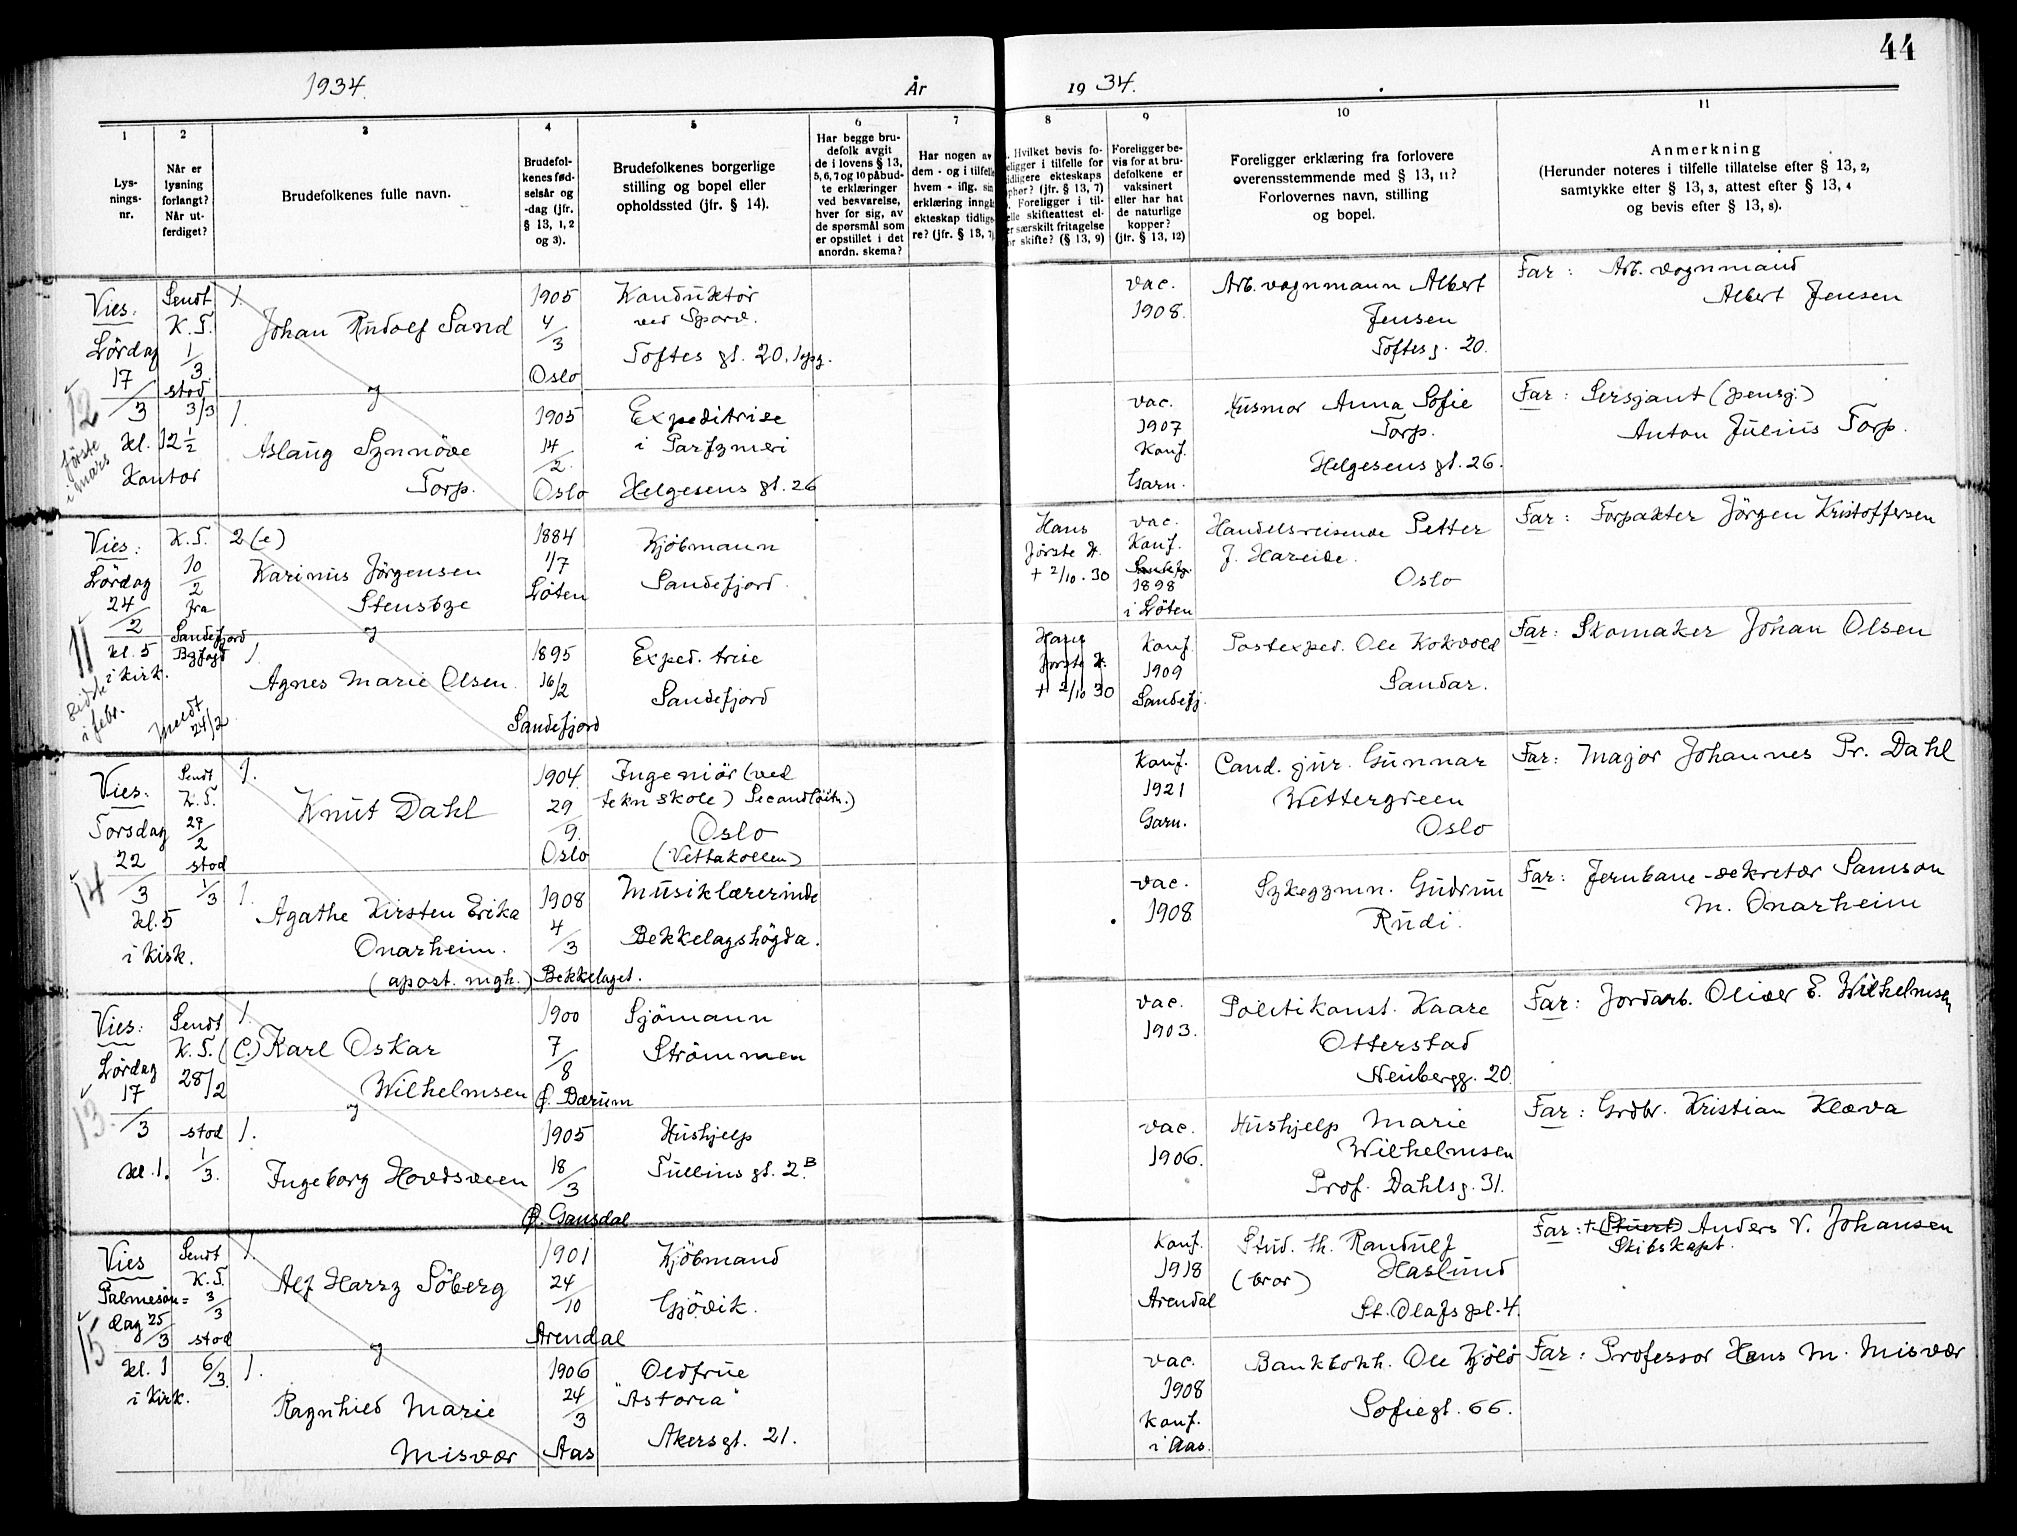 44
1934.
År
19 34.
1
2
3
4
5
6
7
8
9
10
11
Lys-
nings-
nr.
Når er
lysning
forlangt?
Når ut-
ferdiget?
Brudefolkenes fulle navn.
Brudefol-
kenes fød-
selsår og
-dag (jfr.
§ 13, 1, 2
og 3).
Brudefolkenes borgerlige
stilling og bopel eller
opholdssted (jfr. § 14).
Har begge bru-
defolk avgit
de i lovens § 13,
5, 6, 7 og 10 påbud-
te erklæringer
ved besvarelse,
hver for sig, av
de spørsmål som
er opstillet i det
anordn. skema?
Har nogen av
dem - og i tilfelle
hvem - iflg. sin
erklæring inngå
ekteskap tidlige
re? (jfr. § 13, 7)
Hvilket bevis fo-
religger i tilfelle for
tidligere ekteskaps
ophør? (jfr. § 13, 7)
Foreligger i til-
felle skifteattest el-
er særskilt fritagelse
for skifte? (§ 13, 9)
Foreligger be-
vis for at bru-
defolkene er
vaksinert
eller har hat
de naturlige
kopper?
(jfr. § 13, 12)
Foreligger erklæring fra forlovere
overensstemmende med § 13, 11?
Forlovernes navn, stilling
og bopel.
Anmerkning
(Herunder noteres i tilfelle tillatelse efter § 13, 2,
samtykke efter § 13, 3, attest efter § 13, 4
og bevis efter § 13, 8).
12
første
i mars
Vies:
Lördag
17/3
kl. 12 1/2
Kontor
Sendt
K.T.
1/3
stod
3/3
1.
Johan Rudolf Sand
og
1905
4/3
Oslo
Konduktör
ved Sporv.
Toftes gt. 20, opg.
vac.
1908.
Arb. vognmann Albert
Jensen
Toftesg. 20.
Far: Arb. vognmand
Albert Jensen
1.
Aslaug Synnöve
Torp.
1905
14/2.
Oslo
Expeditrise
i Parfymeri
Helgesens gt. 26
vac.
1907
Konf.
Garn.
Husmor Anna Sofie
Torp.
Helgesens gt. 26.
Far: Sersjant (pensj.)
Anton Julius Torp.
11
sidste
i febr.
Vies:
Lördag
24/2
kl. 5
i kirk.
K.T.
10/2
fra
Sandefjord
Byfogd
meldt
24/2
2 (e)
Karinus Jörgensen
Stensbye
og
1884
1/7
Löten
Kjöbmann
Sandefjord.
Hans
förste H.
+ 2/10.30
vac.
Konf.
Sandefj.
1898
i Löten
Handelsreisende Petter
J. Hareide.
Oslo
Far: Forpakter Jörgen Kristoffersen
1.
Agnes Marie Olsen.
1895
16/2
Sandefjord
Exped. trise
Sandefjord
Hans
förste H.
+ 2/10 30
Konf.
1909
Sandefj.
Postexped. Ole Kokvold
Sandar.
Far: Skomaker Johan Olsen
14
Vies:
Torsdag
22/3
kl. 5
i kirk.
Sendt
K.T.
27/2
stod
1/3
1.
Knut Dahl
1904.
29/9.
Oslo
Ingeniör (ved
tekn skole) Secondlöitn.)
Oslo
(Vettakollen)
Konf.
1921
Garn.
Cand. jur. Gunnar
Wettergreen
Oslo
Far: Major Johannes Pr. Dahl
1.
Agathe Kirsten Erika
Onarheim.
(apost. mgh.)
1908
4/3
Bekkelaget.
Musiklærerinde
Bekkelagshögda.
vac.
1908
Sykegymn. Gudrun
Rudi.
Far: Jernbane-sekretær Samson
M. Onarheim
13.
Vies:
Lördag
17/3
kl. 1.
Sendt
K.T.
28/2
stod
1/3.
1.
(C.) Karl Oskar
Wilhelmsen
og
1900
7/8
Ø. Bærum
Sjömann
Strömmen
vac.
1903.
Politikonst. Kaare
Otterstad
Neubergg. 20.
Far: Jordarb. Oliver E. Wilhelmsen
1.
Ingeborg Hovdsveen
1905
18/3
Ø. Gausdal
Hushjelp
Tullins gt. 2.B
vac.
1906.
Hushjelp Marie
Wilhelmsen
Prof. Dahlsg. 31.
Far: Grdbr. Kristian Kleva
15
Vies
Palmesön=
dag 25/3
kl. 1
i kirk.
Sendt
K.T.
3/3
stod
6/3.
1.
Alf Harry Söberg
og
1901
24/10
Arendal
Kjöbmand
Gjövik.
Konf.
1918
Arendal
Stud. th. Randulf
(bror) Haslund
St. Olafs pl. 4.
Far: + (Stuert) Anders V. Johansen
Skibskapt.
1.
Ragnhild Marie
Misvær
1906
24/3
Aas
Oldfrue
"Astoria"
Akersgt. 21.
vac.
1908
Konf.
i Aas.
Bankbokh. Ole Kjölö
Sofiegt. 66.
Far: Professor Hans M. Misvær